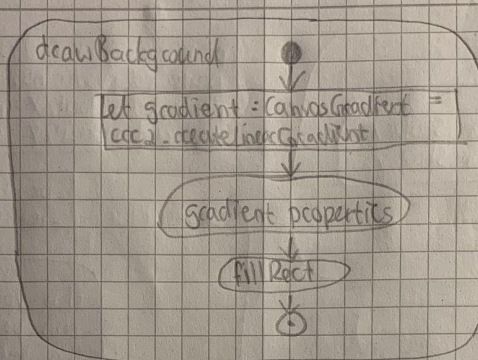 drawBackground
let gradient : CanvasGradient =
crc2.createLinearGradient
gradient properties
fillRect